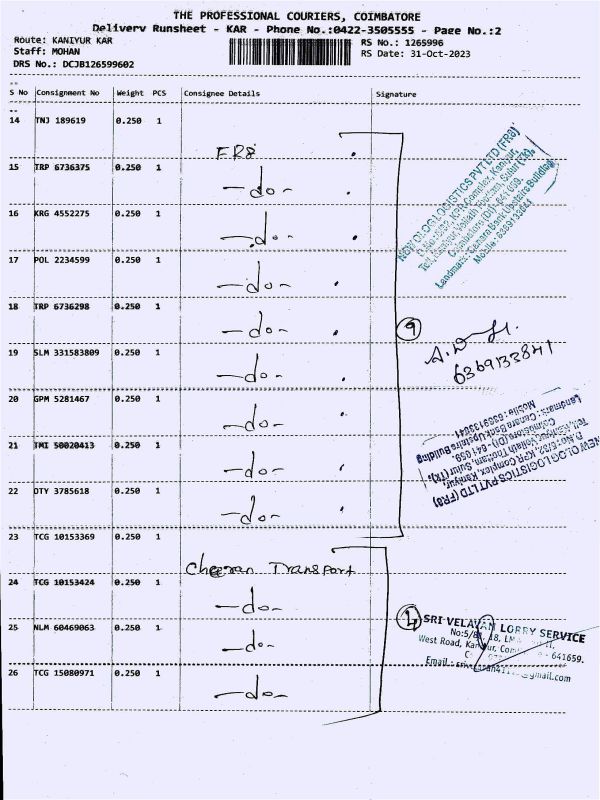 THE PROFESSIONAL COURIERS, COIMBATORE
Delivery Runsheet - KAR - Phone No.:0422-3505555 - Page No.:2
Route: KANIYUR KAR
RS No.: 1265996
Staff: MOHAN
RS Date: 31-Oct-2023
DRS No.: DCJB126599602
S No Consignment No Weight PCS Consignee Details Signature
14 TNJ 189619 0.250 1
FR8
15 TRP 6736375 0.250 1
-do-
16 KRG 4552275 0.250 1
-do-
17 POL 2234599 0.250 1
-do-
18 TRP 6736298 0.250 1
-do-
19 SLM 331583809 0.250 1
-do-
20 GPM 5281467 0.250 1
-do-
21 TMI 50020413 0.250 1
-do-
22 OTY 3785618 0.250 1
-do-
23 TCG 10153369 0.250 1
Cheeran Transport
24 TCG 10153424 0.250 1
-do-
25 NLM 60469063 0.250 1
-do-
26 TCG 15080971 0.250 1
-do-
NEW OLOG LOGISTICS PVT LTD (FR8)
D.No:5/82, KPR Complex, Kaniyur,
Coimbatore (Dt)-641 659.
Landmark: Canara Bank Upstairs Building
Mobile: 6369133841
9
6369133841
NEW OLOG LOGISTICS PVT LTD (FR8)
D.No:5/82, KPR Complex, Kaniyur,
Coimbatore (Dt)-641 659.
Landmark: Canara Bank Upstairs Building
Mobile: 6369133841
4
SRI VELAVAN LORRY SERVICE
West Road, 641659.
Email: gmail.com